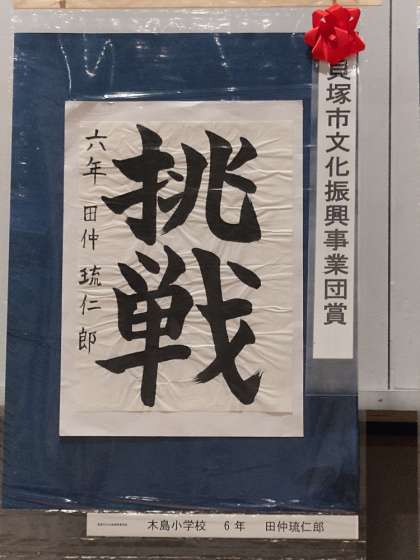 貝塚市文化振興事業団賞
挑戦
六年 田仲 琉仁郎
木島小学校 6年 田仲琉仁郎